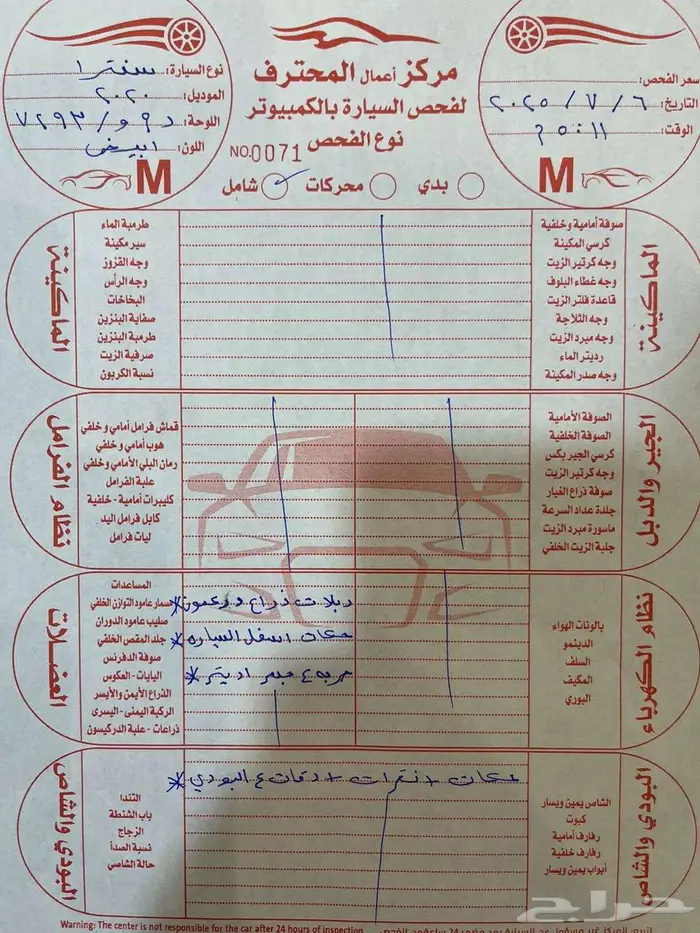 مركز أعمال المحترف
لفحص السيارة بالكمبيوتر
نوع الفحص
NO.0071
بدي
محركات
شامل
سعر الفحص:
التاريخ: ٢٠٢٥/٧/٦
الوقت: ١١:٥٥ م
نوع السيارة: سنترا
الموديل: ٢٠٢٠
اللوحة: د ٩ و / ٧٢٩٣
اللون: ابيض
M
M
الماكينة
صوفة أمامية وخلفية
كرسي المكينة
وجه كرتير الزيت
وجه غطاء البلوف
قاعدة فلتر الزيت
وجه الثلاجة
وجه مبرد الزيت
رديتر الماء
وجه صدر المكينة
طرمبة الماء
سير مكينة
وجه القزوز
وجه الرأس
البخاخات
صفاية البنزين
طرمبة البنزين
صرفية الزيت
نسبة الكربون
الماكينة
الجير والدبل
الصوفة الأمامية
الصوفة الخلفية
كرسي الجير بكس
وجه كرتير الزيت
صوفة ذراع الغيار
جلدة عداد السرعة
ماسورة مبرد الزيت
جلبة الزيت الخلفي
قماش فرامل أمامي وخلفي
هوب أمامي وخلفي
رمان البلي الأمامي وخلفي
علبة الفرامل
كليبرات أمامية - خلفية
كابل فرامل اليد
ليات فرامل
نظام الفرامل
نظام الكهرباء
بالونات الهواء
الدينمو
السلف
المكيف
البوري
المساعدات
مسمار عامود التوازن الخلفي
صليب عامود الدوران
جلد المقص الخلفي
صوفة الدفرنس
اليايات - العكوس
الذراع الأيمن والأيسر
الركبة اليمنى - اليسرى
ذراعات - علبة الدركسون
العضلات
* جلب ذراع
* حكات اسفل السياره
* ضربه ع جسر
البودي والشاص
* حكات + نقرات + دقات ع البودي
الشاص يمين ويسار
كبوت
رفارف أمامية
رفارف خلفية
أبواب يمين ويسار
التندا
باب الشنطة
الزجاج
نسبة الصدأ
حالة الشاصي
البودي والشاص
Warning: The center is not responsible for the car after 24 hours of inspection
حراج